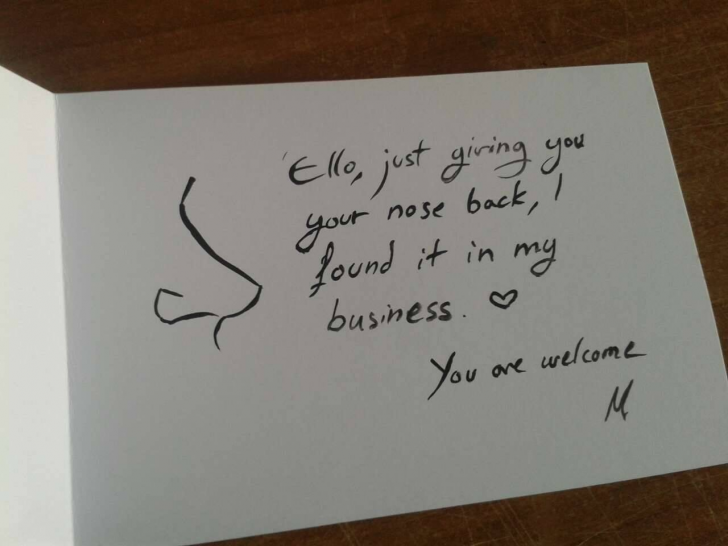 'Ello, just giving you
your nose back, I
found it in my
business. ♡
You are welcome
M